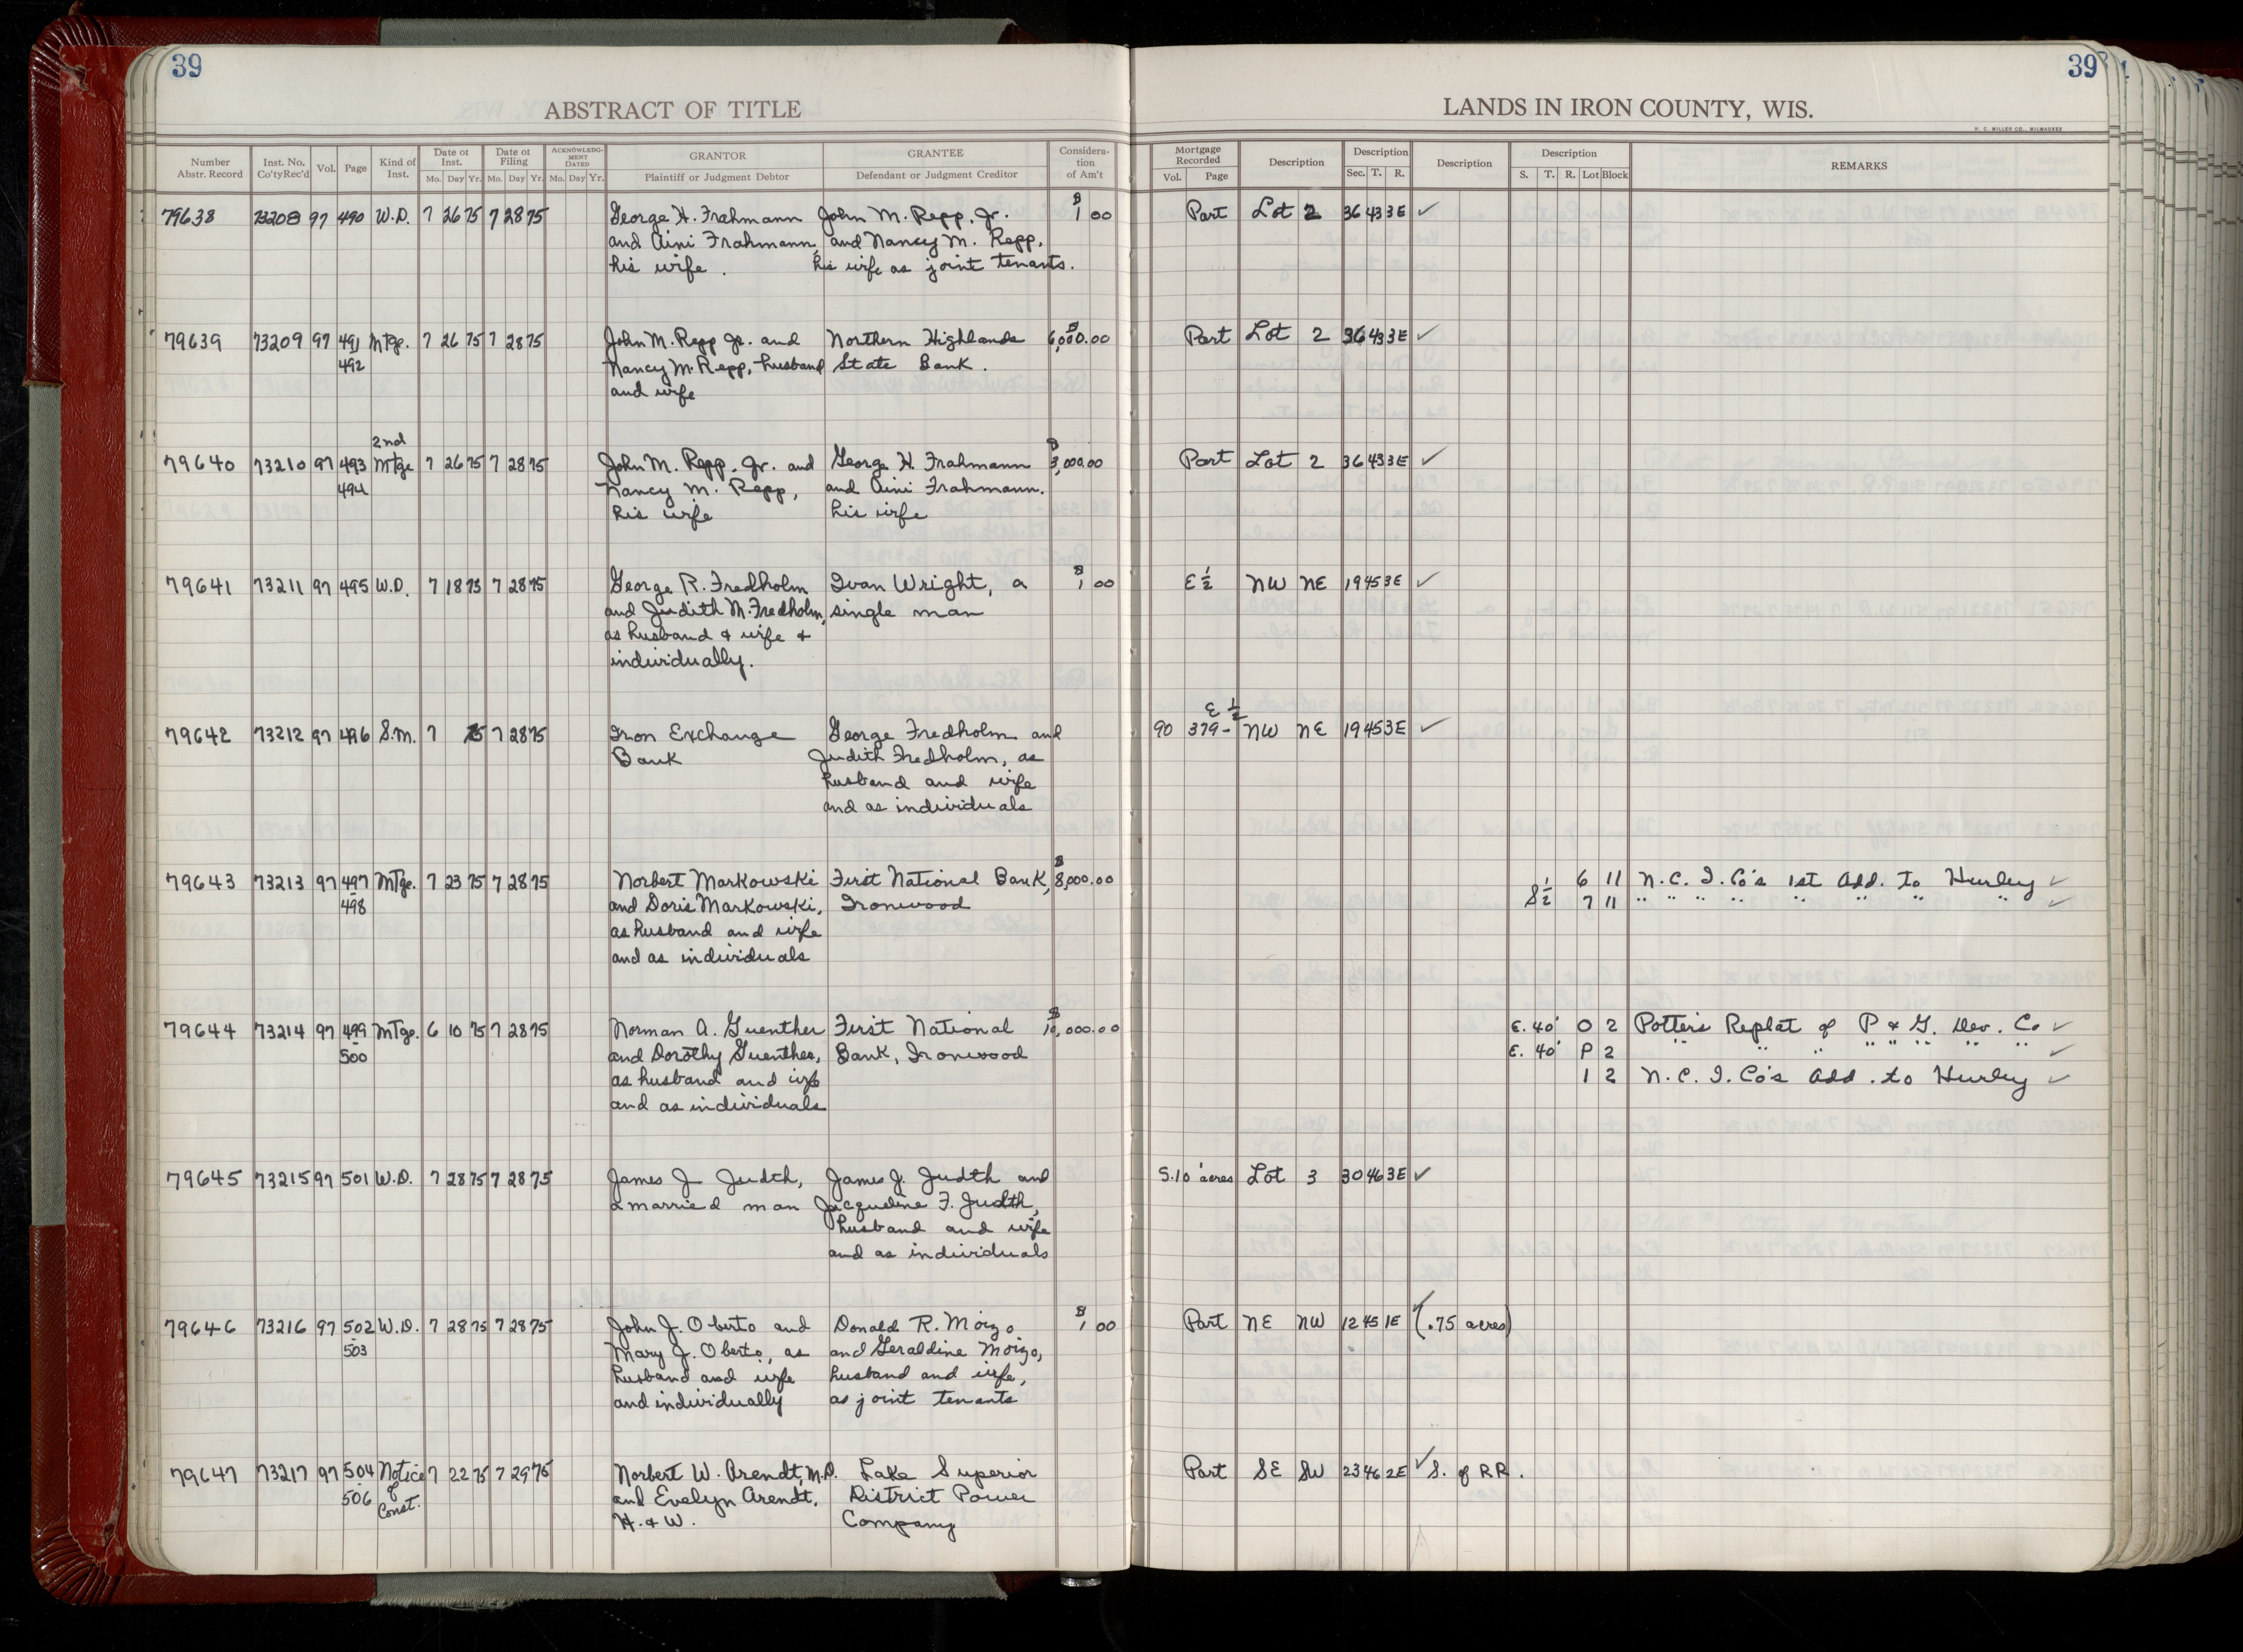 39
39
ABSTRACT OF TITLE
LANDS IN IRON COUNTY, WIS.
H. C. MILLER CO., MILWAUKEE
Number Abstr. Record Inst. No. Co'ty Rec'd Vol. Page Kind of Inst. Date of Inst. Mo. Day Yr. Date of Filing Mo. Day Yr. ACKNOWLEDGMENT DATED Mo. Day Yr. GRANTOR Plaintiff or Judgment Debtor GRANTEE Defendant or Judgment Creditor Consideration of Am't Mortgage Recorded Vol. Page Description Description Sec. T. R. Description Description S. T. R. Lot Block REMARKS
79638 73208 97 490 W.D. 7 26 75 7 28 75 George H. Frahmann John M. Repp, Jr. $1 00 Part Lot 2 36 43 3E ✓
and Aini Frahmann, and Nancy M. Repp,
his wife. his wife as joint tenants.
79639 73209 97 491 Mtge. 7 26 75 7 28 75 John M. Repp Jr. and Northern Highlands $6,000.00 Part Lot 2 36 43 3E ✓
492 Nancy M. Repp, husband State Bank.
and wife
2nd
79640 73210 97 493 Mtge 7 26 75 7 28 75 John M. Repp, Jr. and George H. Frahmann $3,000.00 Part Lot 2 36 43 3E ✓
494 Nancy M. Repp, and Aini Frahmann.
his wife his wife
79641 73211 97 495 W.D. 7 18 75 7 28 75 George R. Fredholm Ivan Wright, a $1 00 E ½ NW NE 19 45 3E ✓
and Judith M. Fredholm, single man
as husband & wife &
individually.
E ½
79642 73212 97 496 S.M. 7 75 7 28 75 Iron Exchange George Fredholm and 90 379- NW NE 19 45 3E ✓
Bank Judith Fredholm, as
husband and wife
and as individuals
79643 73213 97 497 Mtge. 7 23 75 7 28 75 Norbert Markowski First National Bank, $8,000.00 6 11 N.C.I.Co's 1st Add. to Hurley ✓
498 and Doris Markowski, Ironwood S½ 7 11 " " " " " " " " ✓
as husband and wife
and as individuals
79644 73214 97 499 Mtge. 6 10 75 7 28 75 Norman A. Guenther First National $10,000.00 E. 40' O 2 Potter's Replat of P & G. Dev. Co ✓
500 and Dorothy Guenther, Bank, Ironwood E. 40' P 2 " " " " " " " " ✓
as husband and wife 1 2 N.C.I.Co's Add. to Hurley ✓
and as individuals
79645 73215 97 501 W.D. 7 28 75 7 28 75 James J. Judth, James J. Judth and S.10 acres Lot 3 30 46 3E ✓
a married man Jacqueline F. Judth,
husband and wife
and as individuals
79646 73216 97 502 W.D. 7 28 75 7 28 75 John J. Oberto and Donald R. Moizo $1 00 Part NE NW 12 45 1E ✓ (.75 acres)
503 Mary J. Oberto, as and Geraldine Moizo,
husband and wife husband and wife,
and individually as joint tenants
79647 73217 97 504 Notice 7 22 75 7 29 75 Norbert W. Arendt, M.D. Lake Superior Part SE SW 23 46 2E ✓ S. of RR.
506 of and Evelyn Arendt, District Power
Const. H. & W. Company